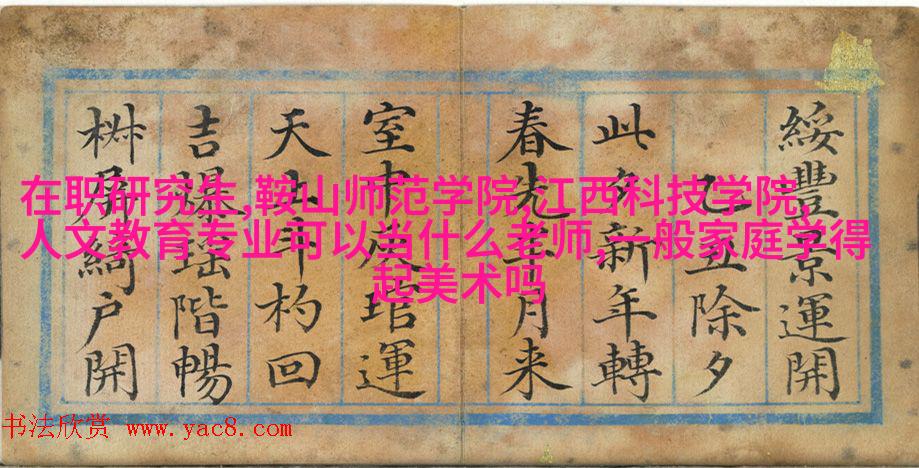 在职研究生,鞍山师范学院,江西科技学院,
人文教育专业可以当什么老师,一般家庭学得
起美术吗
綏豐景運開
乙丑除夕
此夕新年轉
春先半月来
室中葭琯運
天上斗杓回
吉爆瑶階暢
屏綺户開
书法欣赏 www.yac8.com